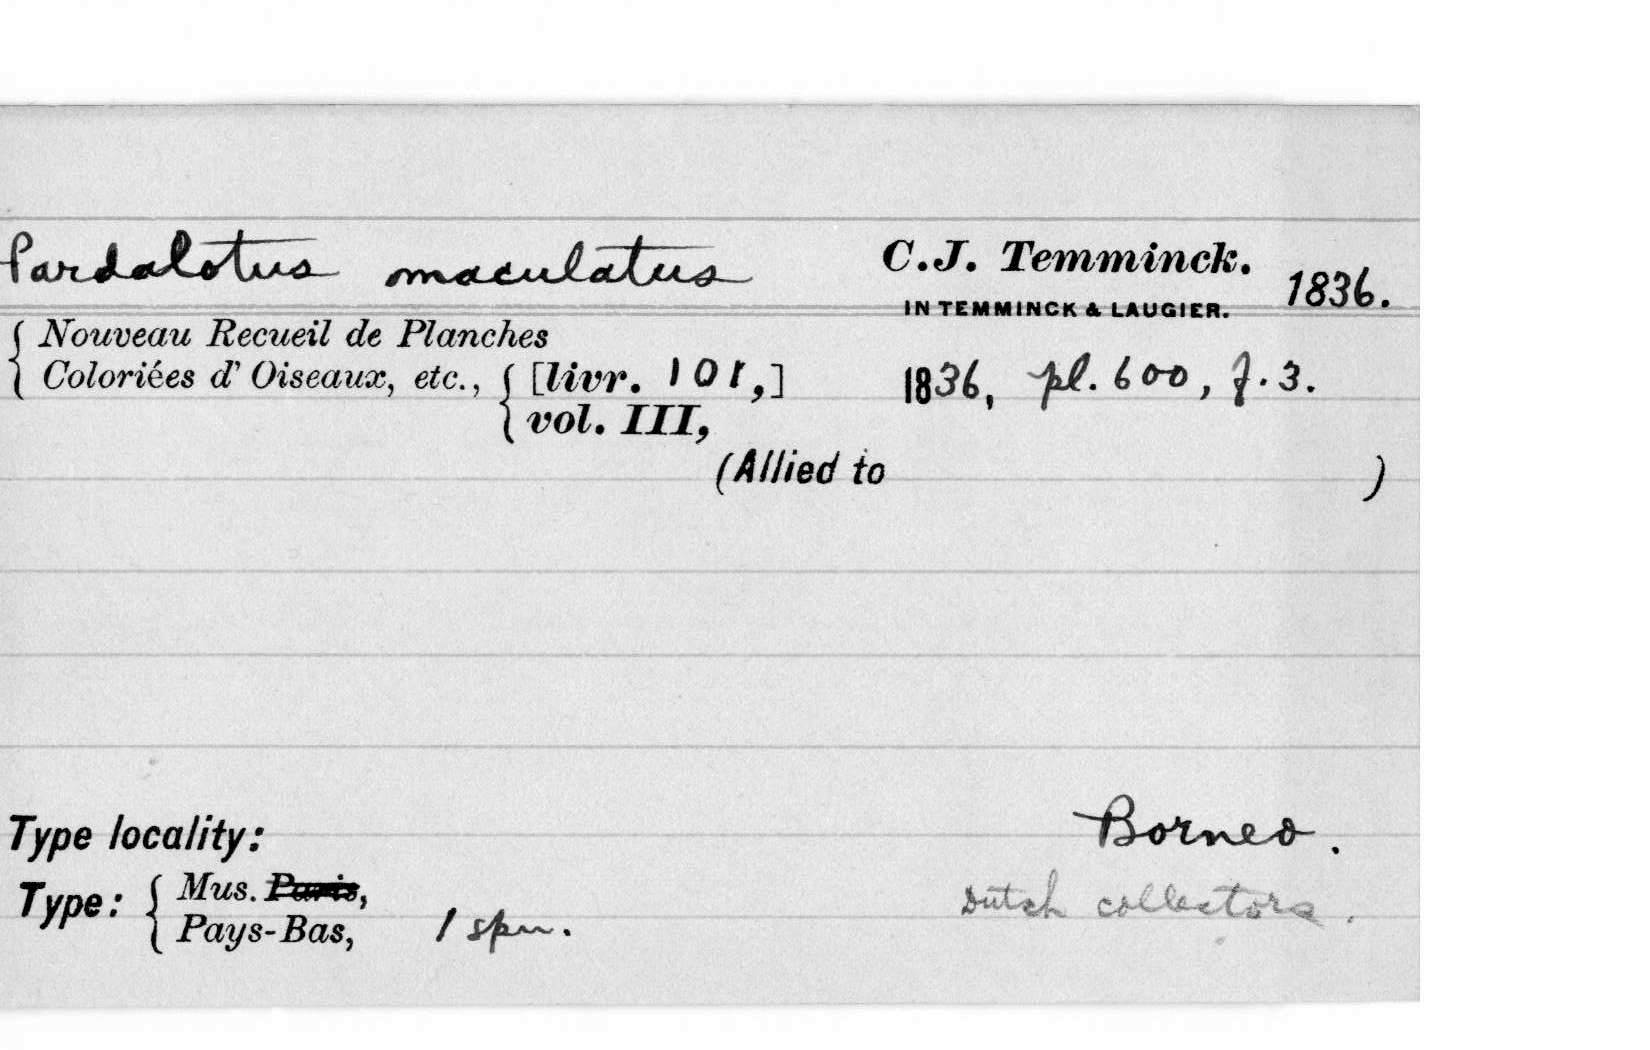 Pardalotus maculatus C.J. Temminck. 1836.
IN TEMMINCK & LAUGIER.
Nouveau Recueil de Planches
Coloriées d' Oiseaux, etc., [livr. 101,] 1836, pl. 600, f. 3.
vol. III,
(Allied to )
Type locality: Borneo.
Type: Mus. Paris, Dutch collectors.
Pays-Bas, 1 spn.